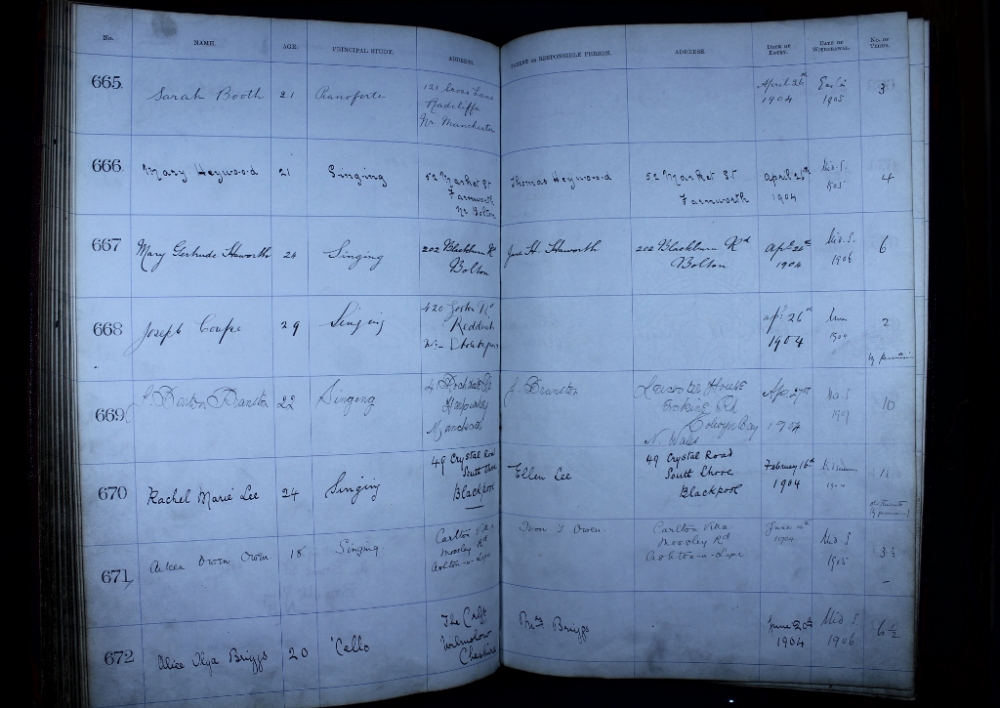 No. NAME. AGE. PRINCIPAL STUDY. ADDRESS. PARENT or RESPONSIBLE PERSON. ADDRESS. DATE OF ENTRY. DATE OF WITHDRAWAL. NO. OF TERMS.
665 Sarah Booth 21 Pianoforte 121 Cross Lane April 26th 3
Radcliffe 1904 1905
Nr. Manchester
666 Mary Heywood 21 Singing 52 Market St Thomas Heywood 52 Market St April 26th Mid. S. 4
Farnworth Farnworth 1904 1905
Nr Bolton
667 Mary Gertrude Haworth 24 Singing 202 Blackburn Rd Haworth 202 Blackburn Rd Apl. 26th Mid. S. 6
Bolton Bolton 1904 1906
668 Joseph Coupe 29 Singing Apl 26th 2
Reddish 1904
Nr Stockport
669 Branston 22 Singing J. Branston Leicester House Apr. 27th Mid S 10
Erskine Rd 1904 1907
Manchester Colwyn Bay
N. Wales
670 Rachel Marie Lee 24 Singing 49 Crystal Road Ellen Lee 49 Crystal Road February 16th
South Shore South Shore 1904
Blackpool Blackpool
671 Owen 18 Singing Carlton Villa Owen Carlton Villa June 1904 Mid S 3½
Mossley Rd Mossley Rd 1905
Ashton-u-Lyne Ashton-u-Lyne
672 Alice Olga Briggs 20 'Cello The Croft Briggs June 20th Mid S. 6½
Wilmslow 1904 1906
Cheshire